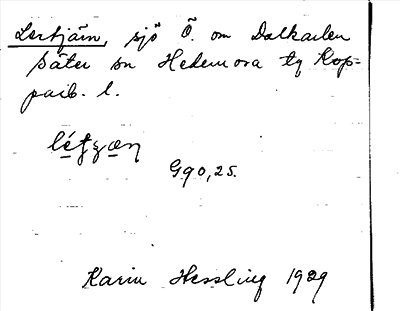 Lertjärn, sjö Ö. om Dalkarlen
säter sn Hedemora tg Kop=
parb. l.
G90,25.
Karin Hessling 1929